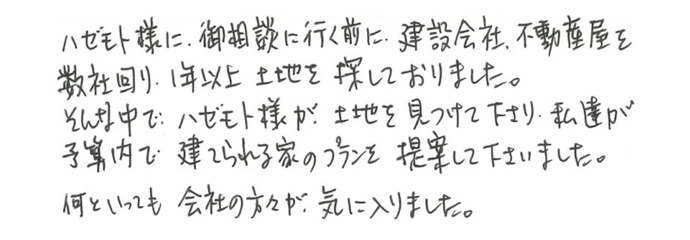 ハゼモト様に、御相談に行く前に、建設会社、不動産屋を
数社回り、1年以上 土地を 探しておりました。
そんな中で、ハゼモト様が、土地を見つけて下さり、私達が
予算内で 建てられる家のプランを 提案して下さいました。
何といっても 会社の方々が、気に入りました。